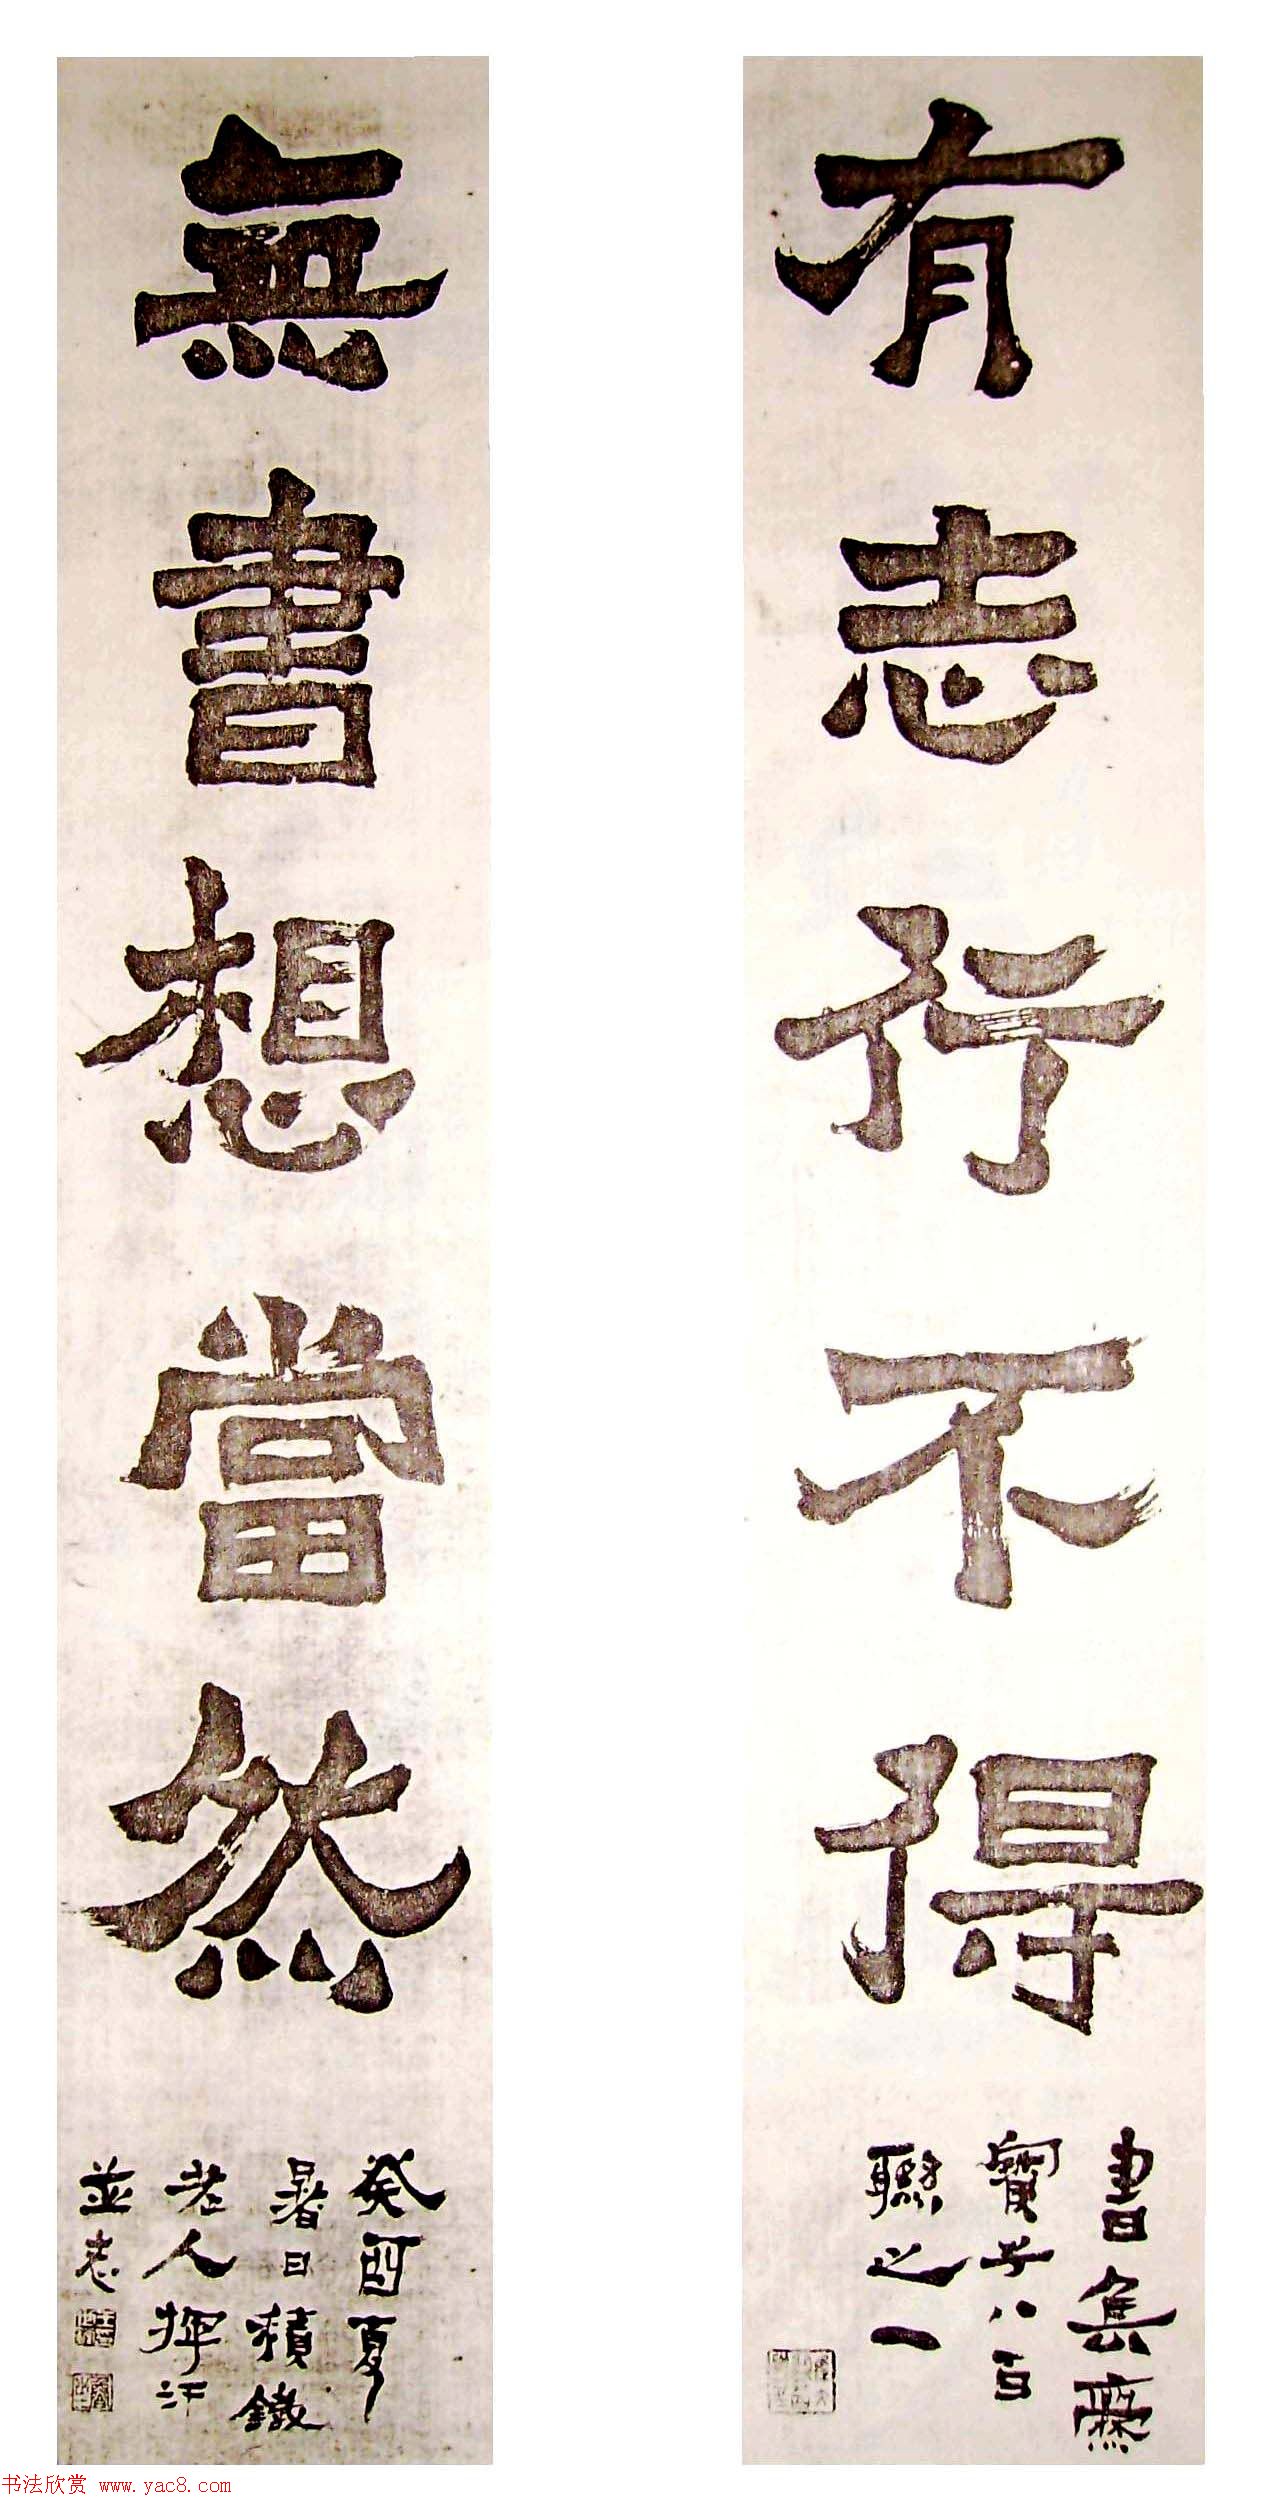 有志行不得
書集爨
寶子八百
聯之一
無書想當然
癸酉夏
暑日積鐵
老人揮汗
並志
书法欣赏 www.yac8.com